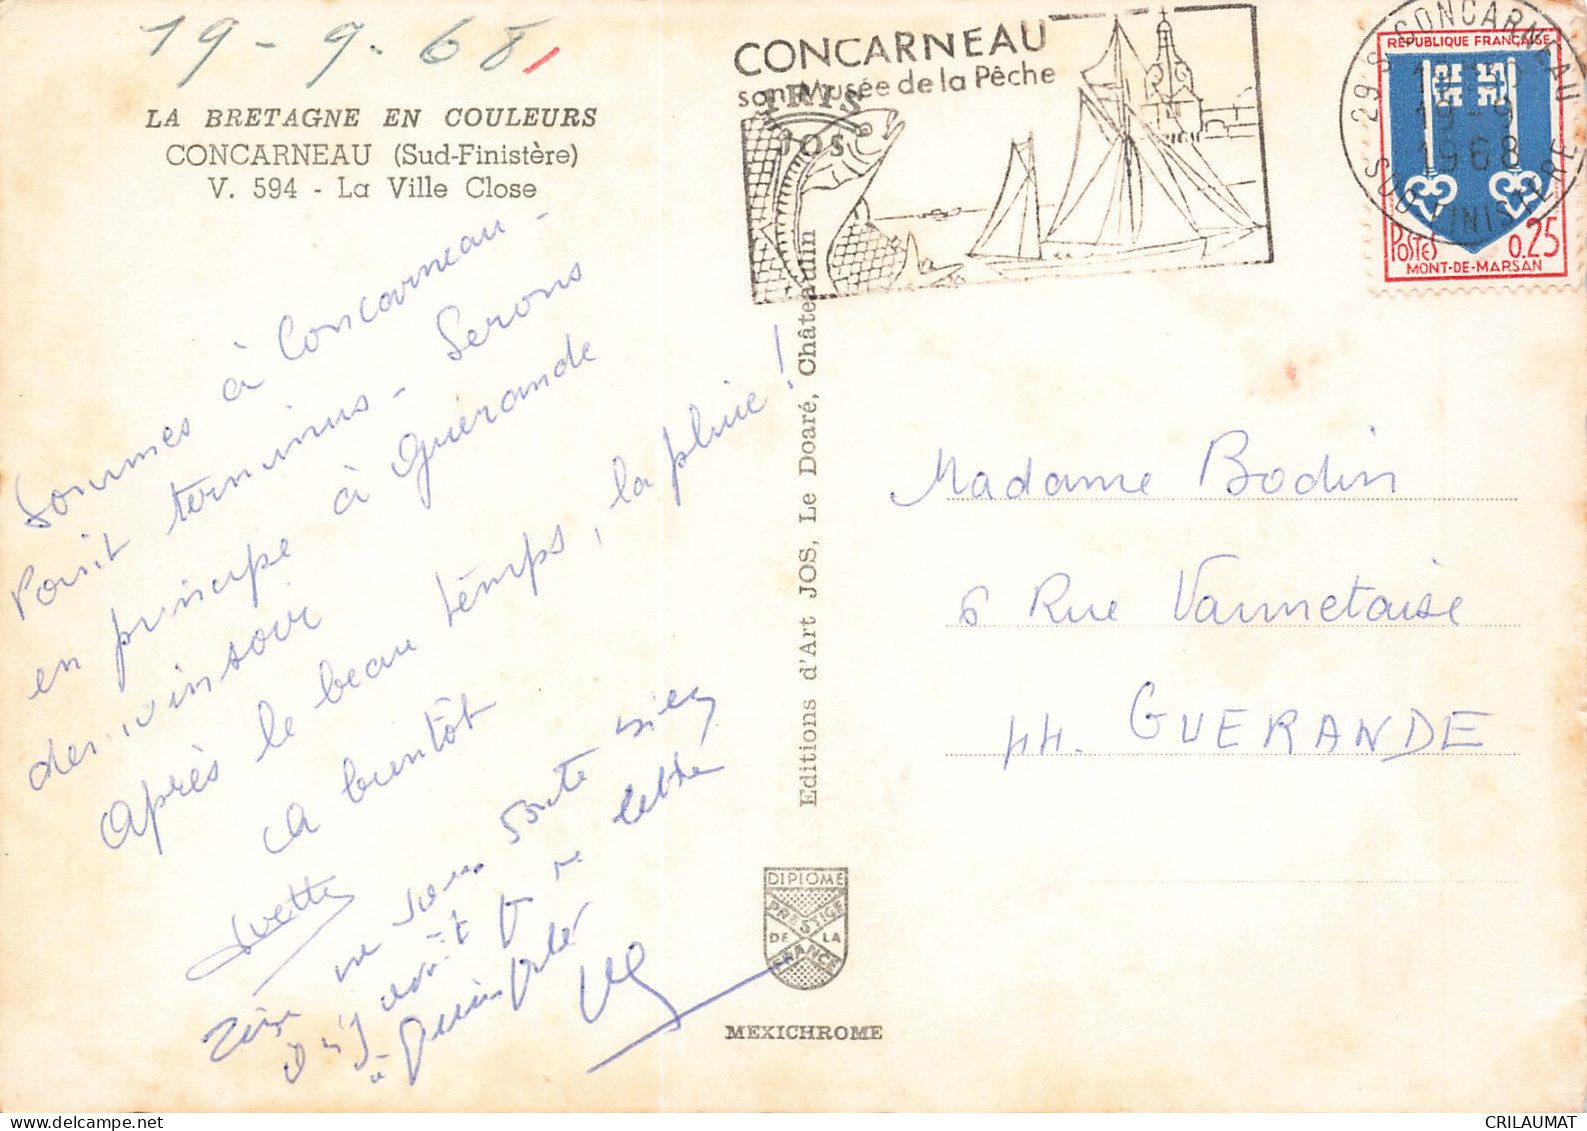 19-9-68
LA BRETAGNE EN COULEURS
CONCARNEAU (Sud-Finistère)
V. 594 - La Ville Close
CONCARNEAU
son Musée de la Pêche
IRIS
JOS
29 S CONCARNEAU
19-9
1968
SUD FINISTERE
REPUBLIQUE FRANÇAISE
POSTES 0,25
MONT-DE-MARSAN
Sommes à Concarneau -
Point terminus - Serons
en principe à Guérande
soir
Après le beau temps, la pluie !
A bientôt
Yvette
ne
à Quimperlé
Editions d'Art JOS, Le Doaré, Châteaulin
Madame Bodin
6 Rue Vannetaise
44. GUERANDE
DIPLOME
PRESTIGE
DE LA
FRANCE
MEXICHROME
CRILAUMAT